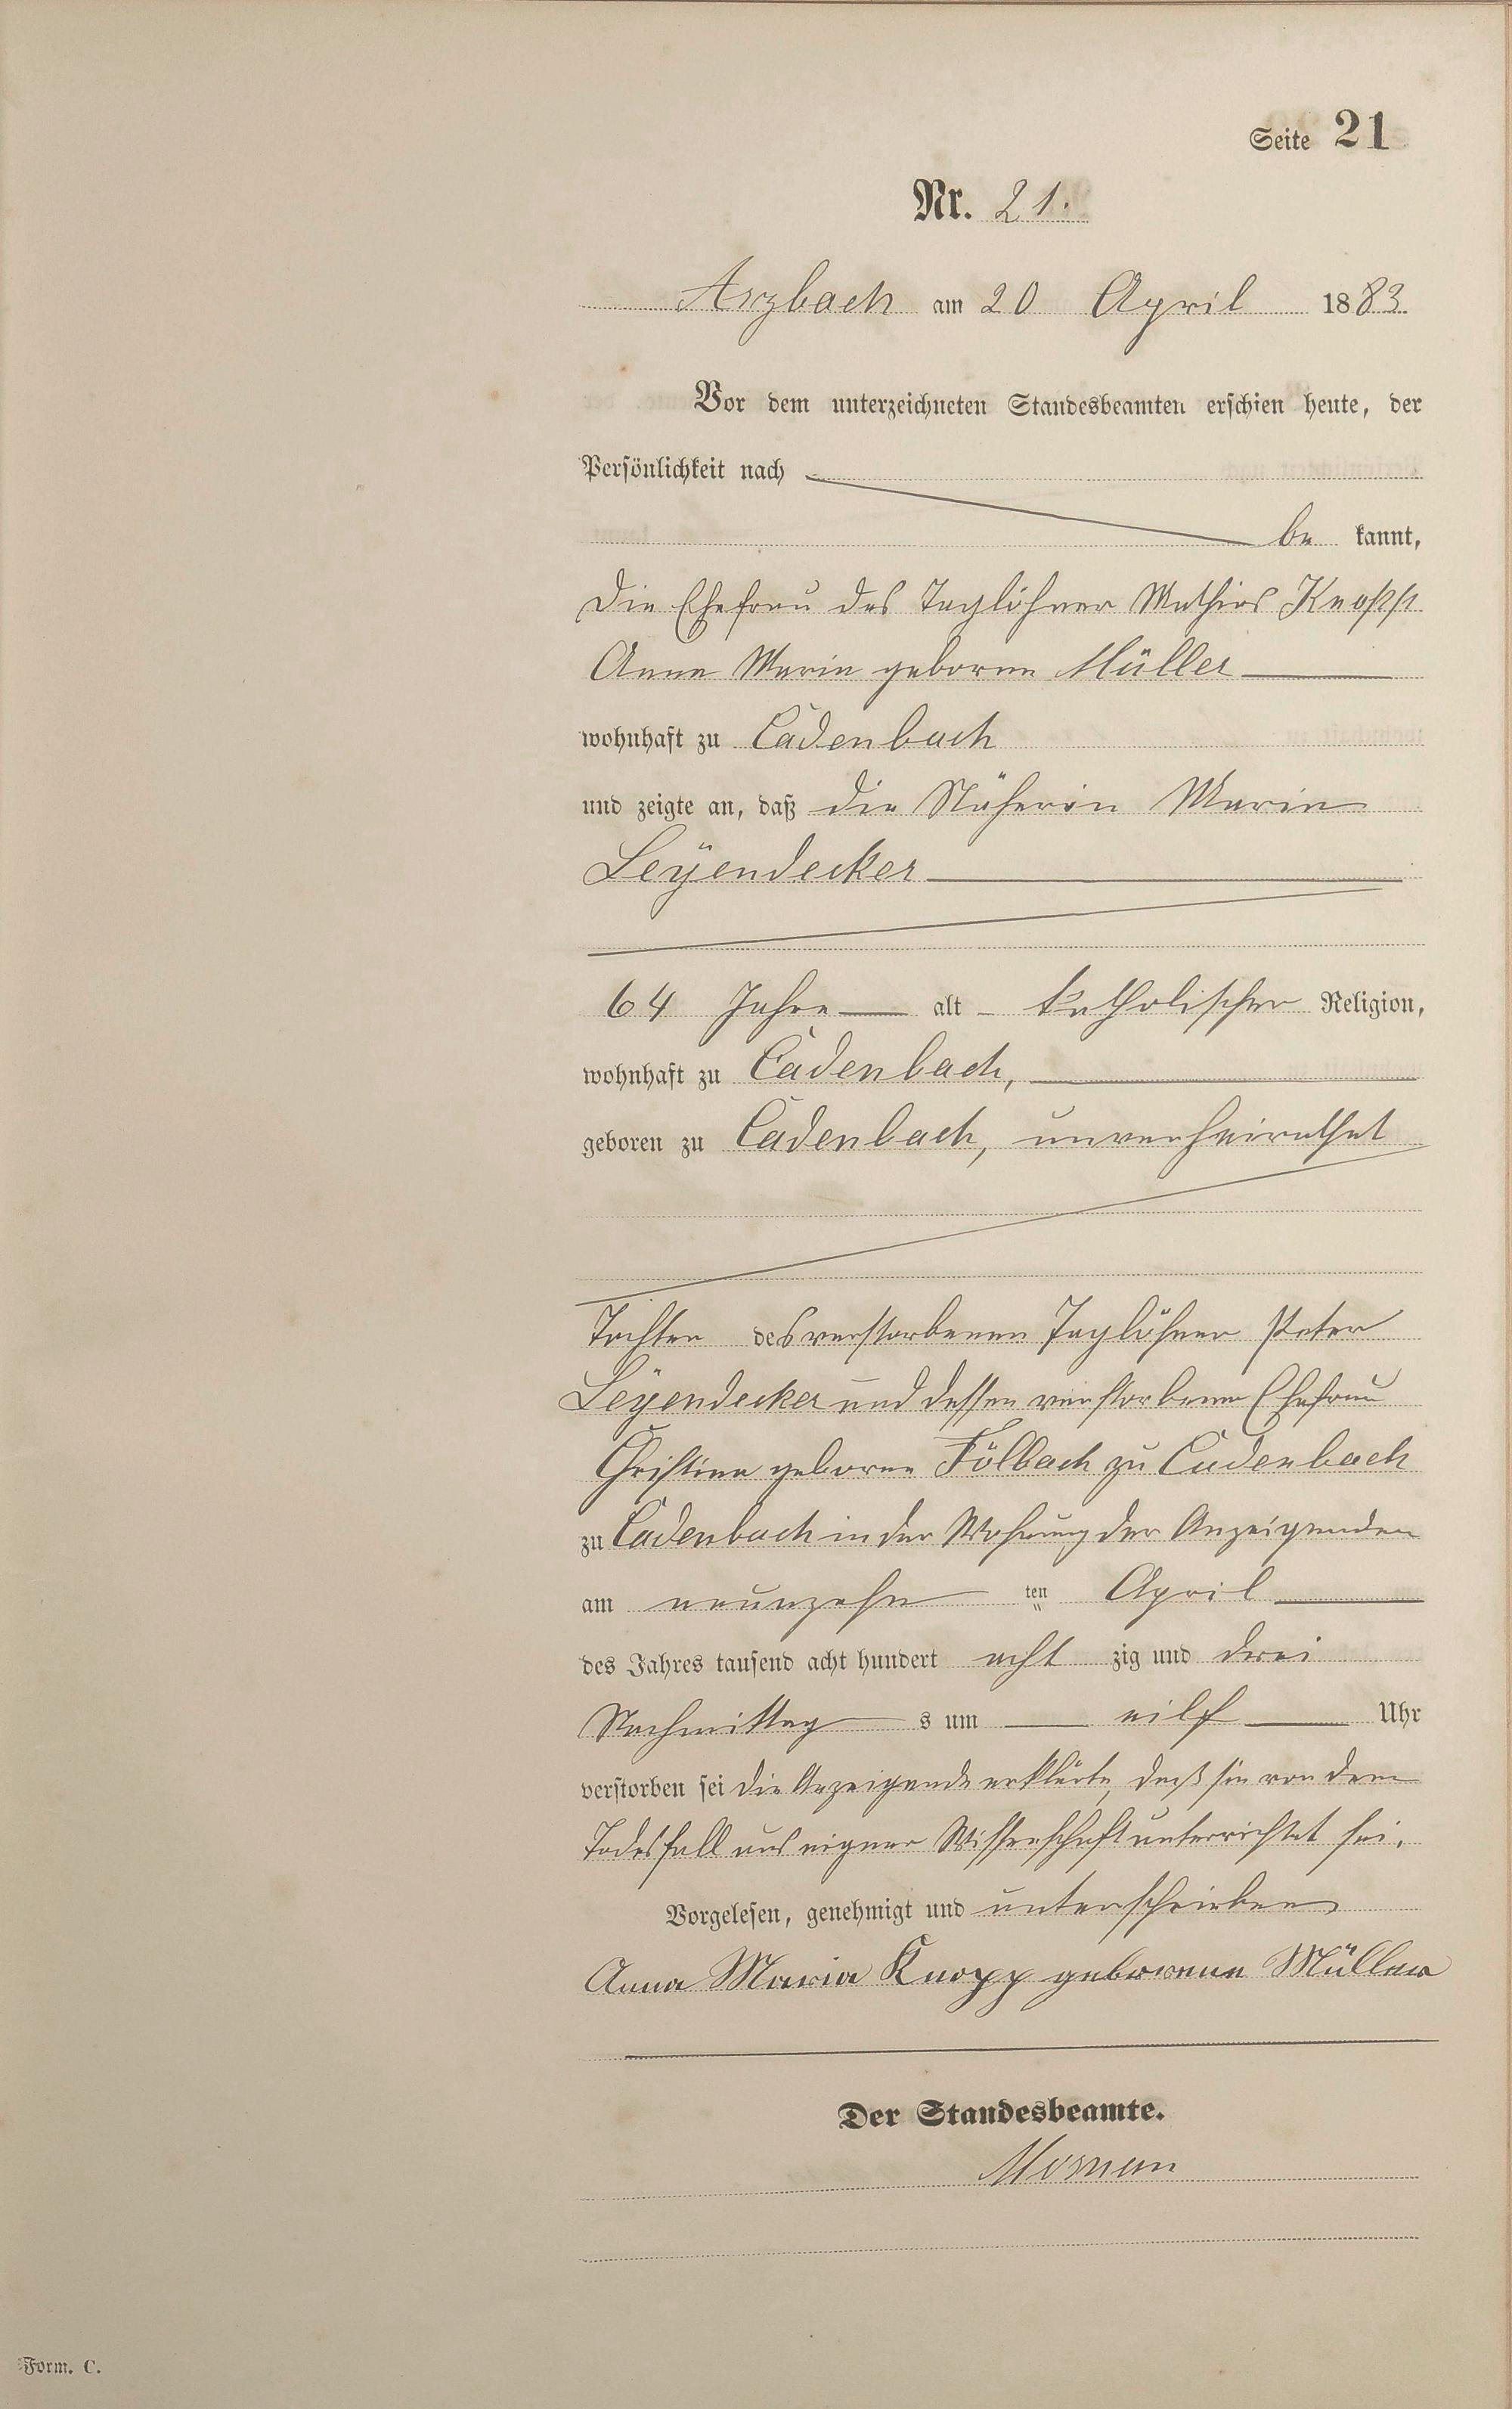 Seite 21
Nr. 21.
Arzbach am 20 April 1883.
Vor dem unterzeichneten Standesbeamten erschien heute, der
Persönlichkeit nach
be kannt,
die Ehefrau des Taglöhner Mathias Knopp
Anna Maria geborene Müller
wohnhaft zu Cadenbach
und zeigte an, daß die Näherin Maria
Leÿendecker
64 Jahre alt katholischer Religion,
wohnhaft zu Cadenbach,
geboren zu Cadenbach, unverheirathet
Tochter des verstorbenen Taglöhner Peter
Leÿendecker und dessen verstorbene Ehefrau
Christina geborne Fölbach zu Cadenbach
zu Cadenbach in der Wohnung der Anzeigenden
am neunzehn ten April
des Jahres tausend acht hundert acht zig und drei
Nachmittag s um eilf Uhr
verstorben sei die Anzeigende erklärte, daß sie von dem
Todesfall aus eigner Wissenschaft unterrichtet sei.
Vorgelesen, genehmigt und unterschrieben
Anna Maria Knopp geborene Müller
Der Standesbeamte.
Form. C.